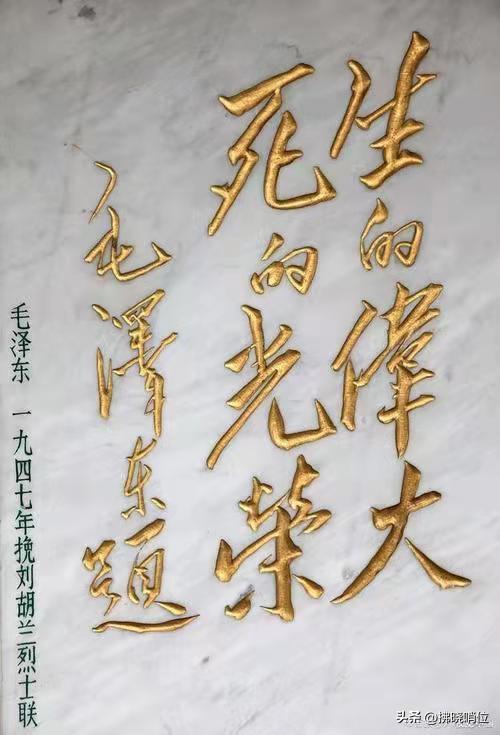 生的偉大
死的光榮
毛澤东題
毛泽东 一九四七年挽刘胡兰烈士联
头条 @拂晓哨位